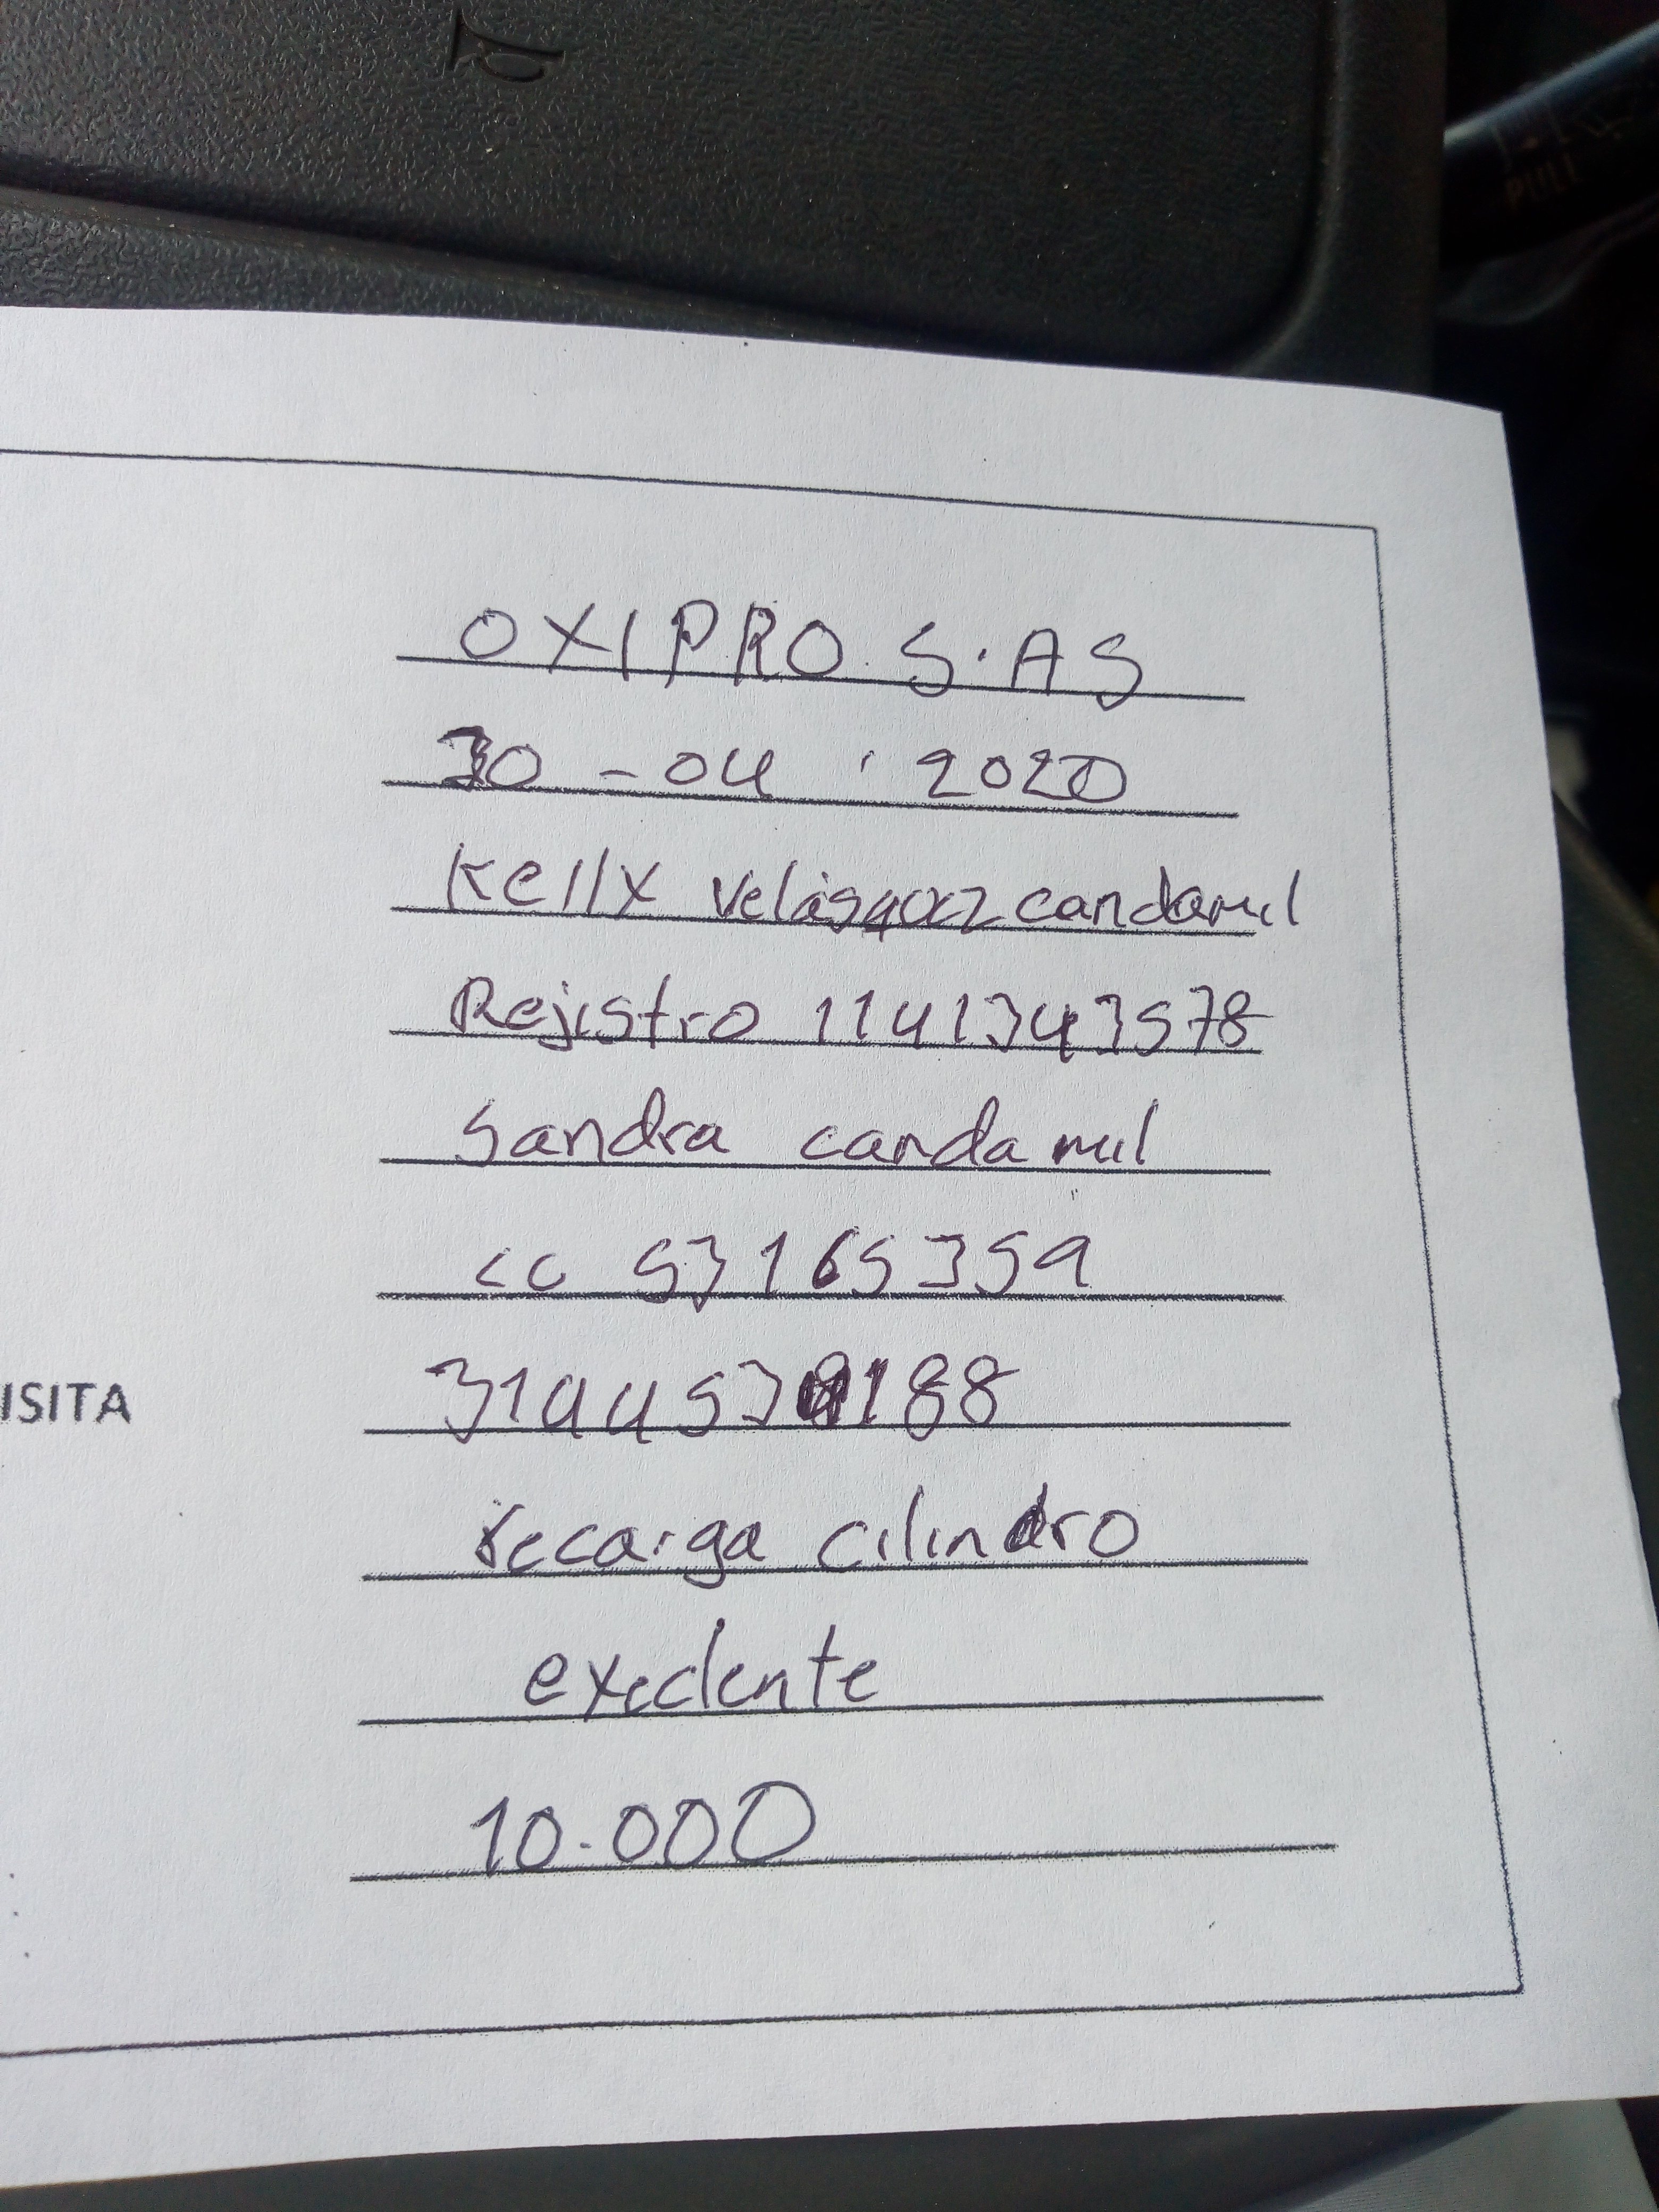 OXIPRO S.AS
30-04.2020
Kelly Velásquez candamil
Rejistro 1141343578
Sandra candamil
cc 53165359
ISITA
recarga cilindro
exedente
10.000